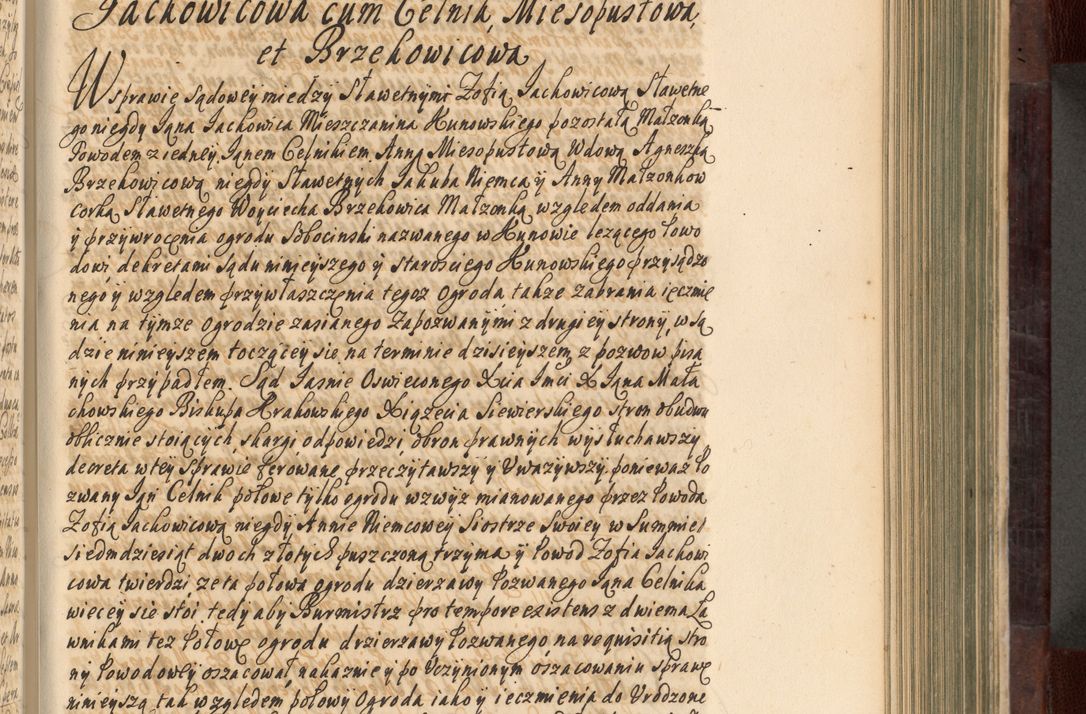 Jachowicowa cum Celnik, Miesopustowa,
et Brzekowicowa
W sprawie sądowey miedzy Sławetnymi Zofią Jachowicową Sławetne
go niegdy Jana Jachowica Mieszczanina Kunowskiego pozostałą Małzonką
Powodem z iedney, Janem Celnikiem, Anną Miesopustową Wdową, Agneszką
Brzekowicową, niegdy Sławetnych Jakuba Niemca y Anny Małzonkow
corką, Sławetnego Woyciecha Brzekowica Małzonką, względem oddania
y przywrocenia ogrodu Sobocinski nazwanego w Kunowie lezącego Powo
dowi, dekretami sądu ninieyszego y starosciego Kunowskiego przysądzo
nego y względem przywłaszczenia tegoz ogroda, takze zabrania ięczmie
nia na tymze ogrodzie zasianego Zapozwanymi z drugiey strony, w są
dzie ninieyszem toczącey sie na terminie dzisieyszem, z pozwow pisa
nych przypadłem. Sąd Jasnie Oswieconego Xcia Jmci X Jana Mała
chowskiego Biskupa Krakowskiego Xiązęcia Siewierskiego stron obudwu
oblicznie stoiących, skargi, odpowiedzi, obron prawnych wysłuchawszy,
decreta w tey sprawie ferowane przeczytawszy y Uwazywszy, poniewaz Po
zwany Jan Celnik połowę tylko ogrodu wzwyz mianowanego przez Powoda
Zofią Jachowicową niegdy Annie Niemcowey Siostrze Swoiey w Summie
Siedmdziesiąt dwoch złotych puszczoną trzyma y Powod Zofia Jachowi
cowa twierdzi ze ta połowa ogrodu dzierzawy Pozwanego Jana Celnika
wiecey sie stoi, tedy aby Burmistrz pro tempore existens z dwiema Ła
wnikami tez Połowę ogrodu dzierzawy Pozwanego, na requisitią stro
ny Powodowey oszacował, nakazuie y po Uczynionym oszacowaniu sprawę
ninieyszą tak względem połowy Ogroda iako y ięczmienia do Urodzone